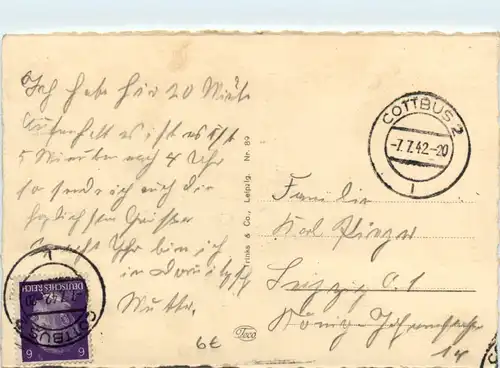 Ich habe hier 20 Minute
Aufenthalt es ist erst
5 Minuten nach 4 Uhr
so sende ich euch die
herzlichsten Grüsse
Uhr bin ich
in
Mutti.
6€
Trinks & Co., Leipzig. Nr. 89
Trco
COTTBUS 2
-7.7.42.-20
1
Familie
Karl
Leipzig O. 1
König Johannstraße
14
COTTBUS 2
DEUTSCHES REICH
6 6